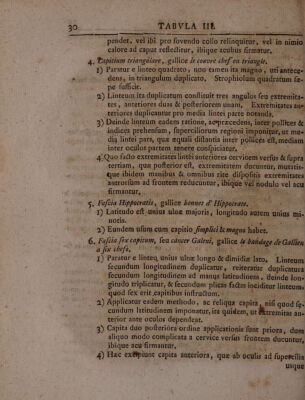 30 TABVLA III.
pendet, vel ibi pro fovendo collo relinquitur, vel in nimio
calore ad caput reflectitur, ibique acubus firmatur.
4. Capitium triangulare, gallice le couvre chef en triangle.
1) Paratur e linteo quadrato, non tamen ita magno, uti antece-
dens, in triangulum duplicato. Strophiolum quadratum sæ-
pe sufficit.
2) Linteum ita duplicatum constituit tres angulos seu extremita-
tes, anteriores duas & posteriorem unam. Extremitates an-
teriores duplicantur pro media lintei parte notanda.
3) Deinde linteum eadem ratione, ac præcedens, inter pollices &
indices prehensum, superciliorum regioni imponitur, ut me-
dia lintei pars, quæ æquali distantia inter pollices est, mediam
inter oculos partem tenere conspiciatur.
4) Quo facto extremitates lintei anteriores cervicem versus & supra
tertiam, quæ posterior est, extremitatem ducuntur, mutatis-
que ibidem manibus & omnibus rite dispositis extremitates
antrorsum ad frontem reducuntur, ibique vel nodulo vel acu
firmantur.
5. Fascia Hippocratis, gallice bonnet d'Hippocrate.
1) Latitudo est unius ulnæ majoris, longitudo autem unius mi-
noris.
2) Eundem usum cum capitio simplici & magno habet.
6. Fascia sex capitum, seu cancer Galeni, gallice le bandage de Gallien
a six chefs.
1) Paratur e linteo unius ulnæ longo & dimidiæ lato. Linteum
secundum longitudinem duplicatur, reiteratur duplicatura
secundum longitudinem ad manus latitudinem, deinde lon-
gitudo triplicatur, & secundum plicas factas inciditur linteum,
quod sex erit capitibus instructum.
2) Applicatur eadem methodo, ac reliqua capita, nisi quod se-
cundum latitudinem imponatur, ita quidem, ut extremitas an-
terior ante oculos dependeat.
3) Capita duo posteriora ordine applicationis sunt priora, dum
aliquo modo complicata a cervice versus frontem ducuntur,
ibique acu firmantur.
4) Hæc excipiunt capita anteriora, quæ ab oculis ad supercilia
usque